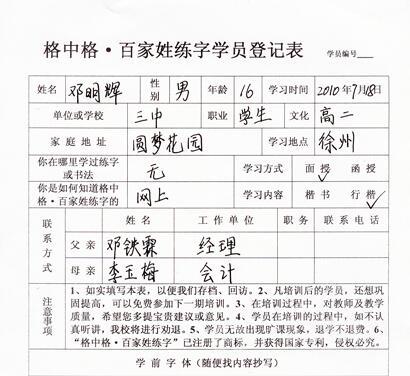 格中格·百家姓练字学员登记表 学员编号
姓名 邓明辉 性别 男 年龄 16 学习时间 2010年7月18日
单位或学校 三中 职业 学生 文化 高二
家庭地址 圆梦花园 学习地点 徐州
你在哪里学过练字或书法 无 学习方式 面授 函授
你是如何知道格中格·百家姓练字的 网上 学习内容 楷书 行楷
联系方式 姓名 工作单位 职务 联系电话
父亲 邓铁霖 经理
母亲 李玉梅 会计
注意事项
1、如实填写本表，以便我们存档、回访。2、凡培训后的学员，还想巩
固提高，可以免费参加下一期培训。3、在培训过程中，对教师及教学
质量，希望您多提宝贵建议或意见。4、学员在培训的过程中，如不认
真听讲，我校将进行劝退。5、学员无故出现旷课现象，退学不退费。6、
“格中格·百家姓练字”已注册了商标，并获得国家专利，侵权必究。
学前字体（随便找内容抄写）